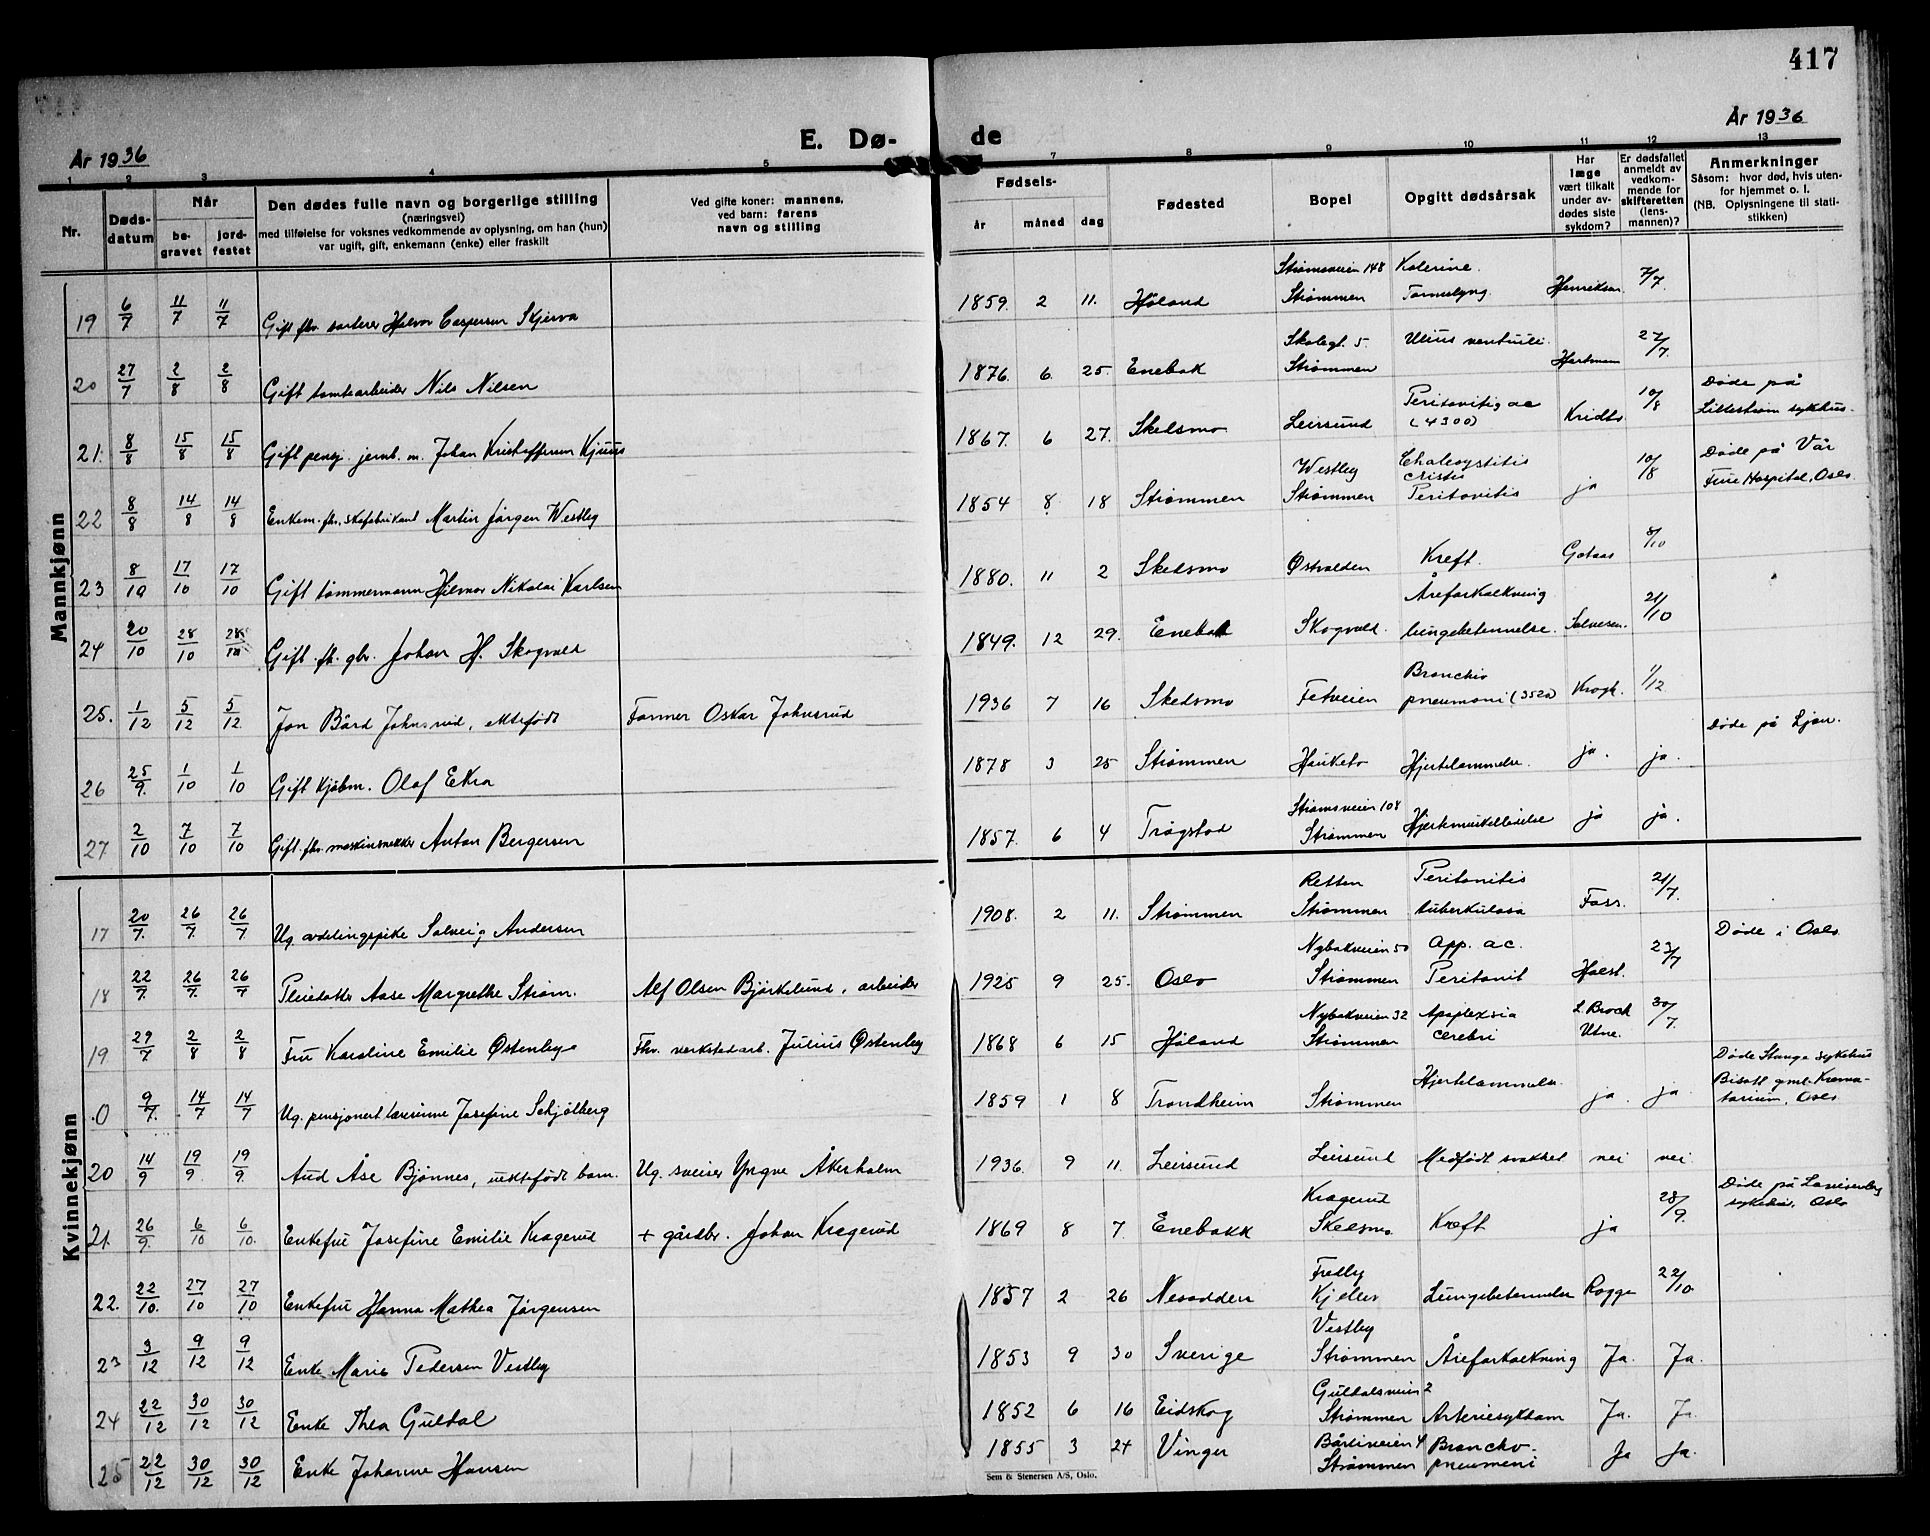 417
År 1936
E. Dø- de
År 1936
1 2 3 4 5 7 8 9 10 11 12 13
Nr.
Døds-
datum
Når
be-
gravet
jord-
festet
Den dødes fulle navn og borgerlige stilling
(næringsvei)
med tilføielse for voksnes vedkommende av oplysning, om han (hun)
var ugift, gift, enkemann (enke) eller fraskilt
Ved gifte koner: mannens,
ved barn: farens
navn og stilling
Fødsels-
år måned dag
Fødested
Bopel
Opgitt dødsårsak
Har
læge
vært tilkalt
under av-
dødes siste
sykdom?
Er dødsfallet
anmeldt av
vedkom-
mende for
skifteretten
(lens-
mannen)?
Anmerkninger
Såsom: hvor død, hvis uten-
for hjemmet o. l.
(NB. Oplysningene til stati-
stikken)
Mannkjønn
19 6/7 11/7 11/7 Gift fhv. sorterer Halvor Caspersen Skjerva 1859. 2 11. Høland Strømsveien 148 Strømmen Henriksen 7/7
20 27/7 2/8 2/8 Gift tomtearbeider Nils Nilsen 1876. 6. 25. Enebak Skolegt. 5. Strømmen Ulcus ventriculi Hartman 27/7.
21. 8/8 15/8 15/8 Gift pensj. jernb. m. Johan Kristoffersen Kjuus 1867. 6 27. Skedsmo Leirsund Peritonitis ac (4300) 10/8 Døde på Lillestrøm sykhus.
22 8/8 14/8 14/8 Enkem. fhv. skofabrikant Martin Jørgen Westby 1854 8 18 Strømmen Westby Strømmen Peritonitis ja 10/8 Døde på Vår Frue Hospital, Oslo
23 8/10 17/10 17/10 Gift tømmermann Hilmar Nikolai Karlsen 1880. 11 2 Skedsmo Østvolden Kreft. Gotaas 8/10
24 20/10 28/10 28/10 Gift. fh. gbr. Johan H. Skogvold 1849. 12 29. Enebak Skogvold. Åreforkalkning lungebetennelse. Salvesen. 21/10
25. 1/12 5/12 5/12 Jon Bård Johnsrud, ektefødt Former Oskar Johnsrud 1936 7 16 Skedsmo Fetveien Broncho pneumoni (3520) Krogh. 1/12 
26 25/9. 1/10 1/10 Gift kjøbm. Olaf Ekra 1878 3 25 Strømmen Hauketo Hjertelammelse. ja. ja. Døde på Ljan.
27 2/10 7/10 7/10 Gift. fhv. maskinsnekker Anton Bergersen 1857. 6 4 Trøgstad Strømsveien 108 Strømmen Hjertemuskellidelse ja ja.
Kvinnekjønn
17 20/7. 26/7. 26/7. Ug. avdelingspike Solveig Andersen 1908. 2 11. Strømmen Retten Strømmen Peritonitis tuberkulosa Foss. 21/7. Døde i Oslo
18 22/7. 26/7. 26/7 Pleiedatter Aase Margrethe Strøm. Alf Olsen Bjørkelund, arbeider 1925 9 25. Oslo Nybakveien 50 Strømmen App. ac. Peritonit Holst. 23/7
19 29/7 2/8 2/8 Fru Karoline Emilie Østenbye Fhv. verkstedarb. Julius Østenby 1868 6 15 Høland Nybakveien 32 Strømmen Apoplexia cerebri L. Broch Utne. 30/7.
0 9/7. 14/7 14/7 Ug. pensjonert lærerinne Josefine Schjølberg 1859 1 8 Trondheim Strømmen Hjertelammelse ja. ja. Døde Stange sykehus Bisatt gml. Krema- torium, Oslo
20 14/9 19/9 19/9. Aud Åse Bjønnes, uektefødt barn. Ug. sveiser Yngve Åkerholm 1936. 9 11. Leirsund Leirsund Medfødt svakhet nei nei
21. 26/9. 6/10 6/10. Enkefru Josefine Emilie Kragerud + gårdbr. Johan Kragerud 1869 8 7. Enebakk Kragerud Skedsmo Kreft ja 28/9. Døde på Lovisenberg sykehus, Oslo
22. 22/10. 27/10 27/10 Enkefru Hanna Mathea Jørgensen 1857 2 26 Nesodden Fredly Kjeller Lungebetennelse Rogge 22/10.
23 3/12 9/12 9/12 Enke Marie Pedersen Vestby 1853 9 30 Sverige Vestby Strømmen Åreforkalkning Ja. Ja.
24 22/12 30/12 30/12 Enke Thea Guldal 1852 6 16 Eidskog Guldalsveien 2 Strømmen Arteriesykdom Ja. Ja.
25 22/12 30/12 30/12 Enke Johanne Hansen 1855 3 24 Vinger Bårliveien 4 Strømmen Broncho- pneumoni Ja ja.
Sem & Stenersen A/S, Oslo.